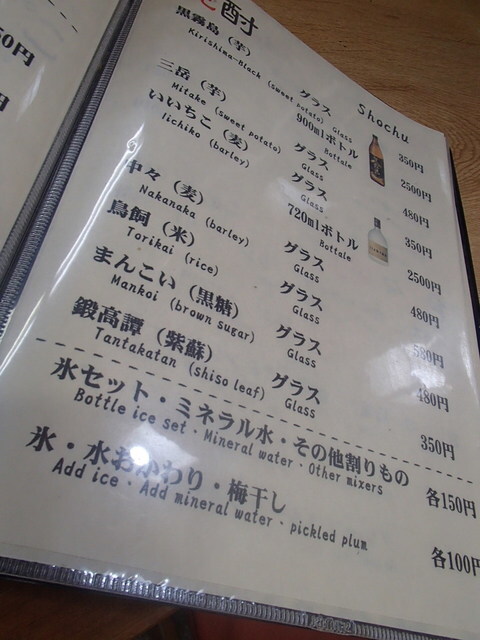 酎 Shochu
黒霧島（芋） グラス 350円
Kirishima-Black (sweet potato) Glass
900mlボトル 2500円
Bottale
三岳（芋） グラス 480円
Mitake (sweet potato) Glass
いいちこ（麦） グラス 350円
Iichiko (barley) Glass
720mlボトル 2500円
Bottale
中々（麦） グラス 480円
Nakanaka (barley) Glass
鳥飼（米） グラス 580円
Torikai (rice) Glass
まんこい（黒糖） グラス 480円
Mankoi (brown sugar) Glass
鍛高譚（紫蘇） グラス 350円
Tantakatan (shiso leaf) Glass
氷セット・ミネラル水・その他割りもの 各150円
Bottle ice set · Mineral water · Other mixers
氷・水おかわり・梅干し 各100円
Add ice · Add mineral water · pickled plum